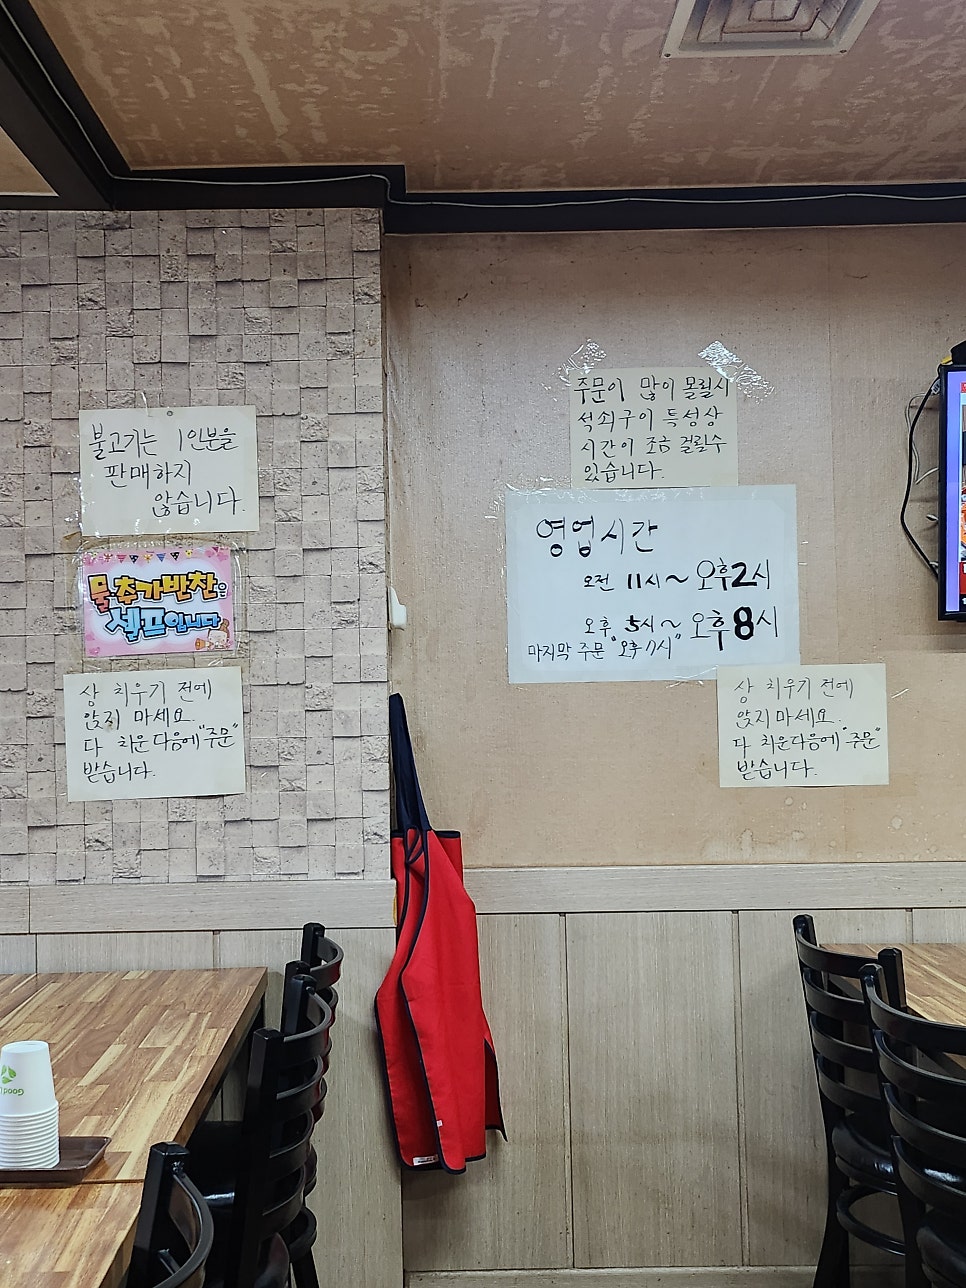 불고기는 1인분을
판매하지
않습니다.
물·추가반찬은
셀프입니다
상 치우기 전에
앉지 마세요.
다 치운다음에 "주문"
받습니다.
주문이 많이 몰릴시
석쇠구이 특성상
시간이 조금 걸릴수
있습니다.
영업시간
오전 11시~오후2시
오후 5시~오후8시
마지막 주문 "오후 7시"
상 치우기 전에
앉지마세요.
다 치운다음에 "주문"
받습니다.